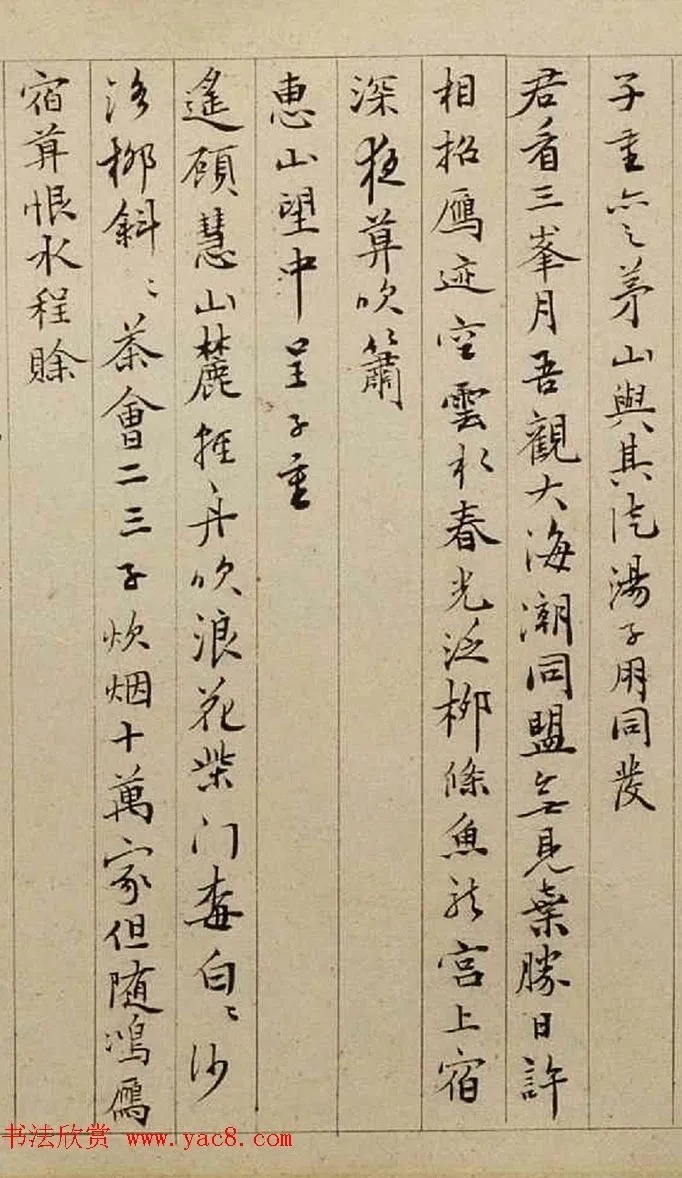 子重亦之茅山與其湯子朋同發
君看三峯月吾觀大海潮同盟無見棄勝日許
相招鴈迹空雲水春光泛柳條魚龍宮上宿
深夜莫吹簫
惠山望中呈子重
遙顧慧山麓舟吹浪花柴門春白〻沙
路柳斜〻茶會二三子炊烟十萬家但随鴻鴈
宿莫恨水程賖
书法欣赏 www.yac8.com